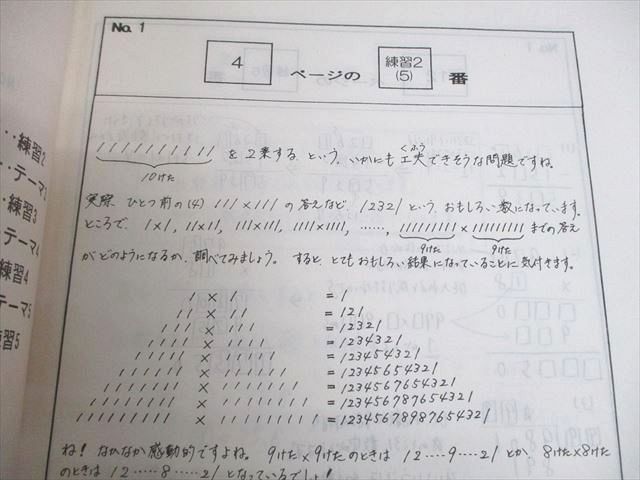 No. 1
4 ページの 練習2 (5) 番
1111111111 を2乗する、という、いかにも工夫できそうな問題ですね。
くふう
10けた
実際、ひとつ前の(4) 111×111 の答えなど、12321という、おもしろい数になっています。
ところで、1×1, 11×11, 111×111, 1111×1111, ……, 111111111×111111111 までの答え
9けた 9けた
がどのようになるか、調べてみましょう。すると、とてもおもしろい結果になっていることに気付きます。
1 × 1 = 1
11 × 11 = 121
111 × 111 = 12321
1111 × 1111 = 1234321
11111 × 11111 = 123454321
111111 × 111111 = 12345654321
1111111 × 1111111 = 1234567654321
11111111 × 11111111 = 123456787654321
111111111 × 111111111 = 12345678987654321
ね! なかなか感動的ですよね。9けた×9けたのときは 12…‥9…‥21 とか、8けた×8けた
のときは 12……8……21 となっているでしょ!
‥練習2
‥テーマ2
‥練習3
テーマ4
練習4
テーマ5
練習5